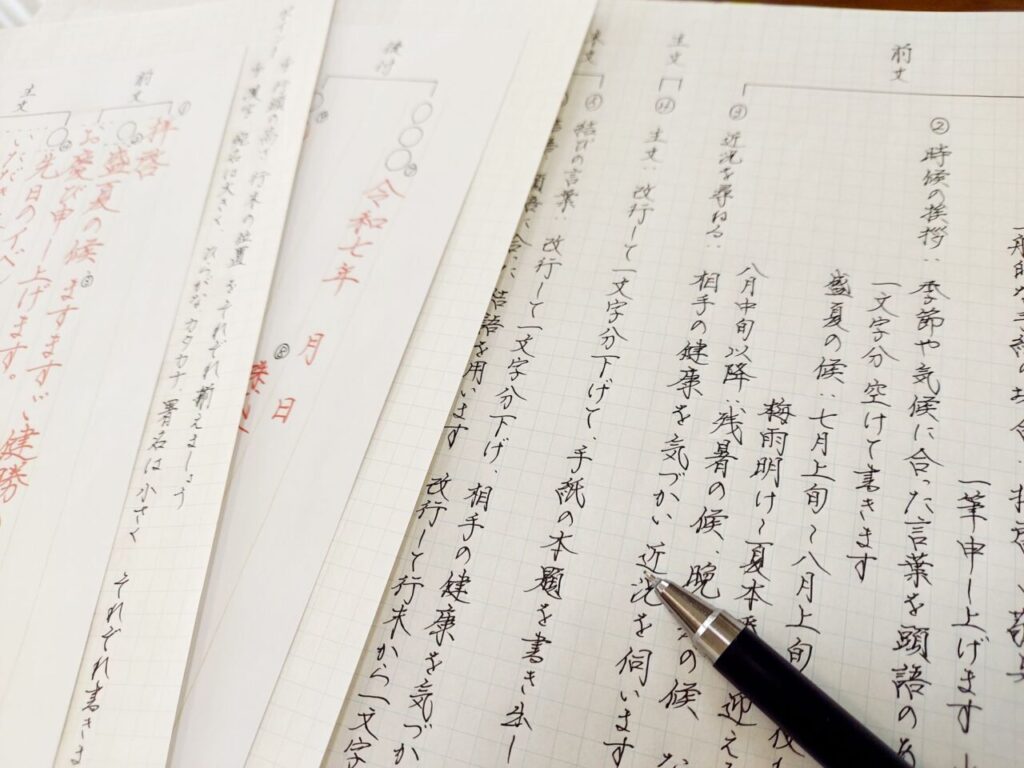 前文
② 時候の挨拶：季節や気候に合った言葉を頭語の
一筆申し上げます
一文字分空けて書きます
盛夏の候：七月上旬～八月上旬
梅雨明け～夏本
迎え
八月中旬以降：残暑の候、晩
の候、
③ 近況を尋ねる：
相手の健康を気づかい近況を伺います
主文
④ 主文：改行して一文字分下げて、手紙の本題を書き出し
末文
⑤ 結びの言葉：改行して一文字分下げ、相手の健康を気づか
結語を用います 改行して行末から一文字
後付
令和七年 月 日
行頭の高さ、行末の位置をそれぞれ揃えましょう
漢字 宛名は大きく ひらがな カタカナ、署名は小さく それぞれ書きま
前文
① 拝啓
盛夏の候 ますますご健勝
お慶び申し上げます。
主文
先日のイベン
いただき